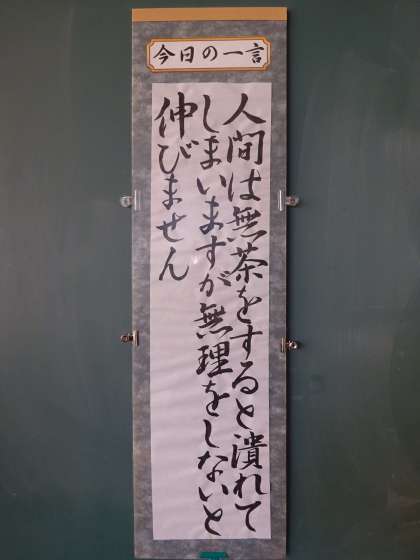 今日の一言
人間は無茶をすると潰れて
しまいますが無理をしないと
伸びません